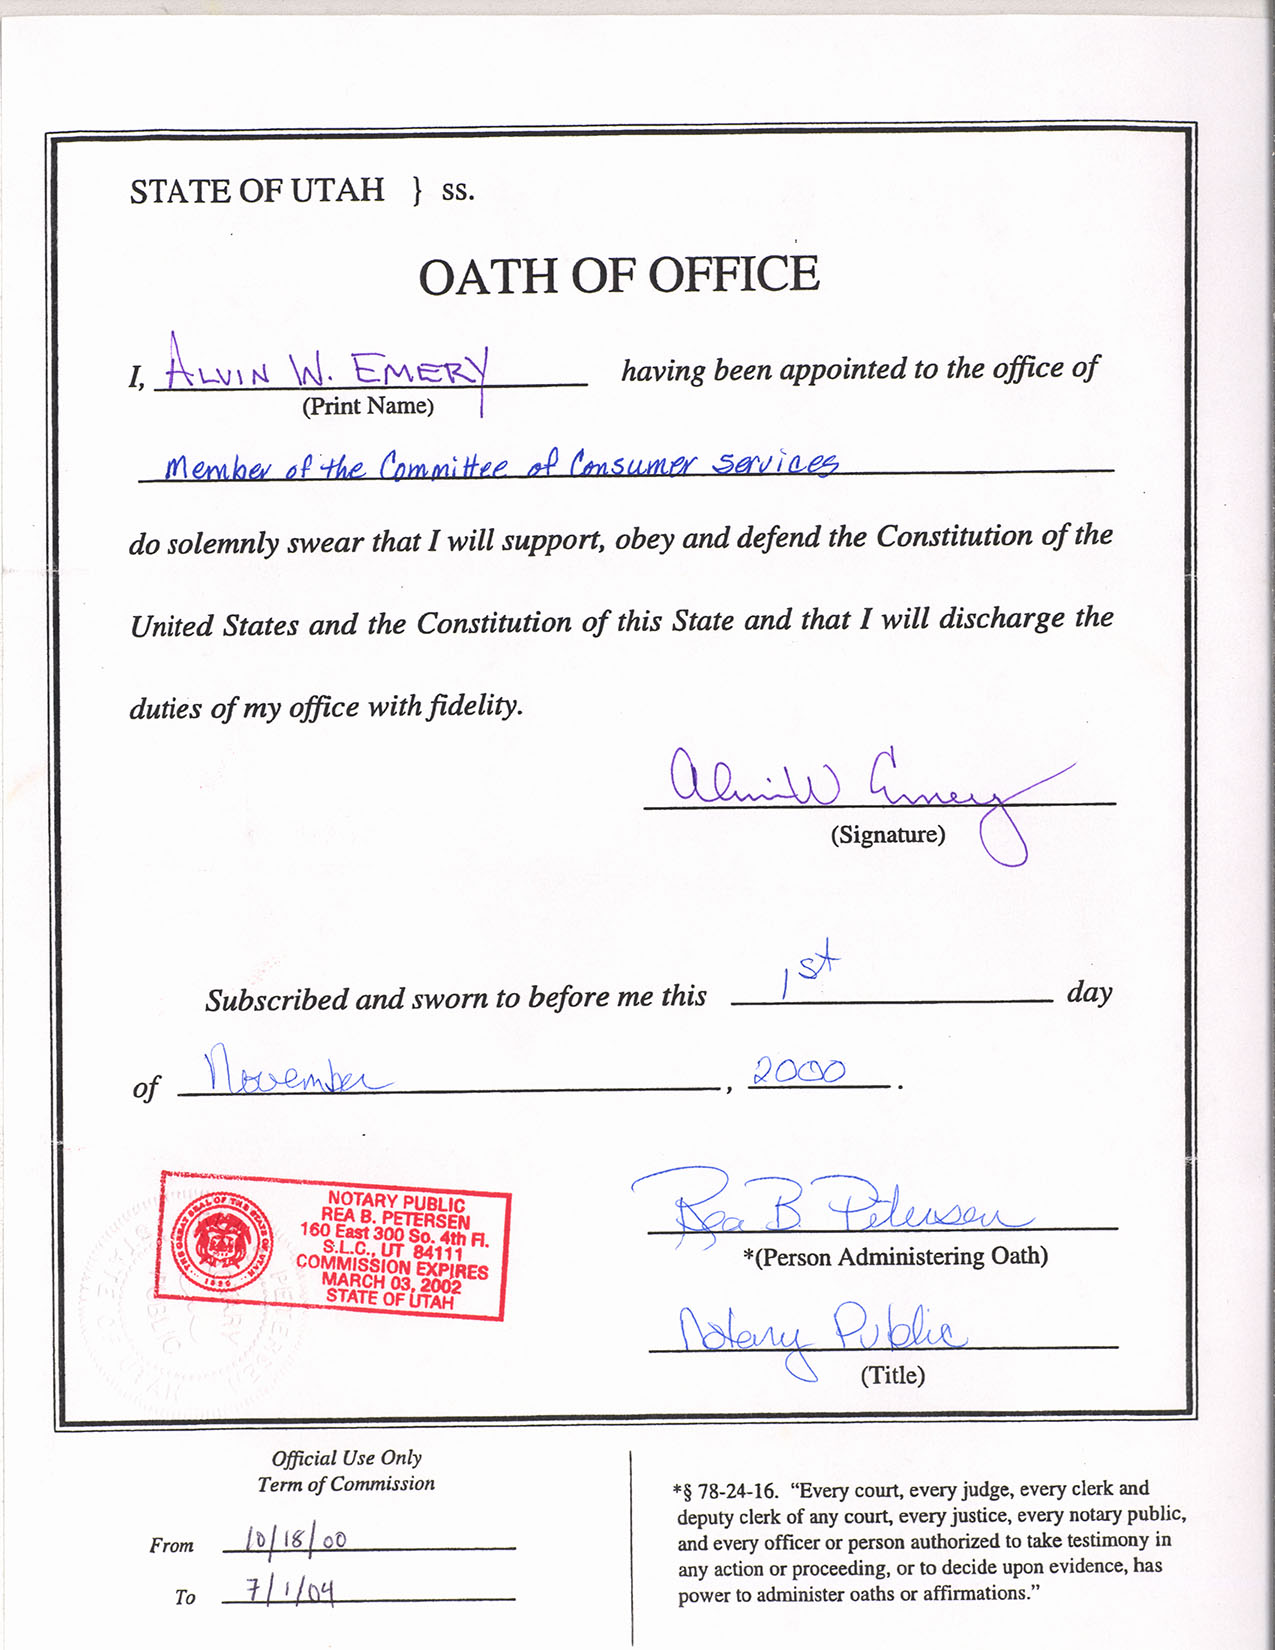 STATE OF UTAH } ss.
OATH OF OFFICE
I, ALVIN W. EMERY having been appointed to the office of
(Print Name)
Member of the Committee of Consumer Services
do solemnly swear that I will support, obey and defend the Constitution of the
United States and the Constitution of this State and that I will discharge the
duties of my office with fidelity.
Alvin W Emery
(Signature)
Subscribed and sworn to before me this 1st day
of November, 2000.
NOTARY PUBLIC
REA B. PETERSEN
160 East 300 So. 4th Fl.
S.L.C., UT 84111
COMMISSION EXPIRES
MARCH 03, 2002
STATE OF UTAH
THE GREAT SEAL OF THE STATE OF UTAH
1896
Rea B. Petersen
*(Person Administering Oath)
Notary Public
(Title)
Official Use Only
Term of Commission
From 10/18/00
To 7/1/04
*§ 78-24-16. “Every court, every judge, every clerk and
deputy clerk of any court, every justice, every notary public,
and every officer or person authorized to take testimony in
any action or proceeding, or to decide upon evidence, has
power to administer oaths or affirmations.”